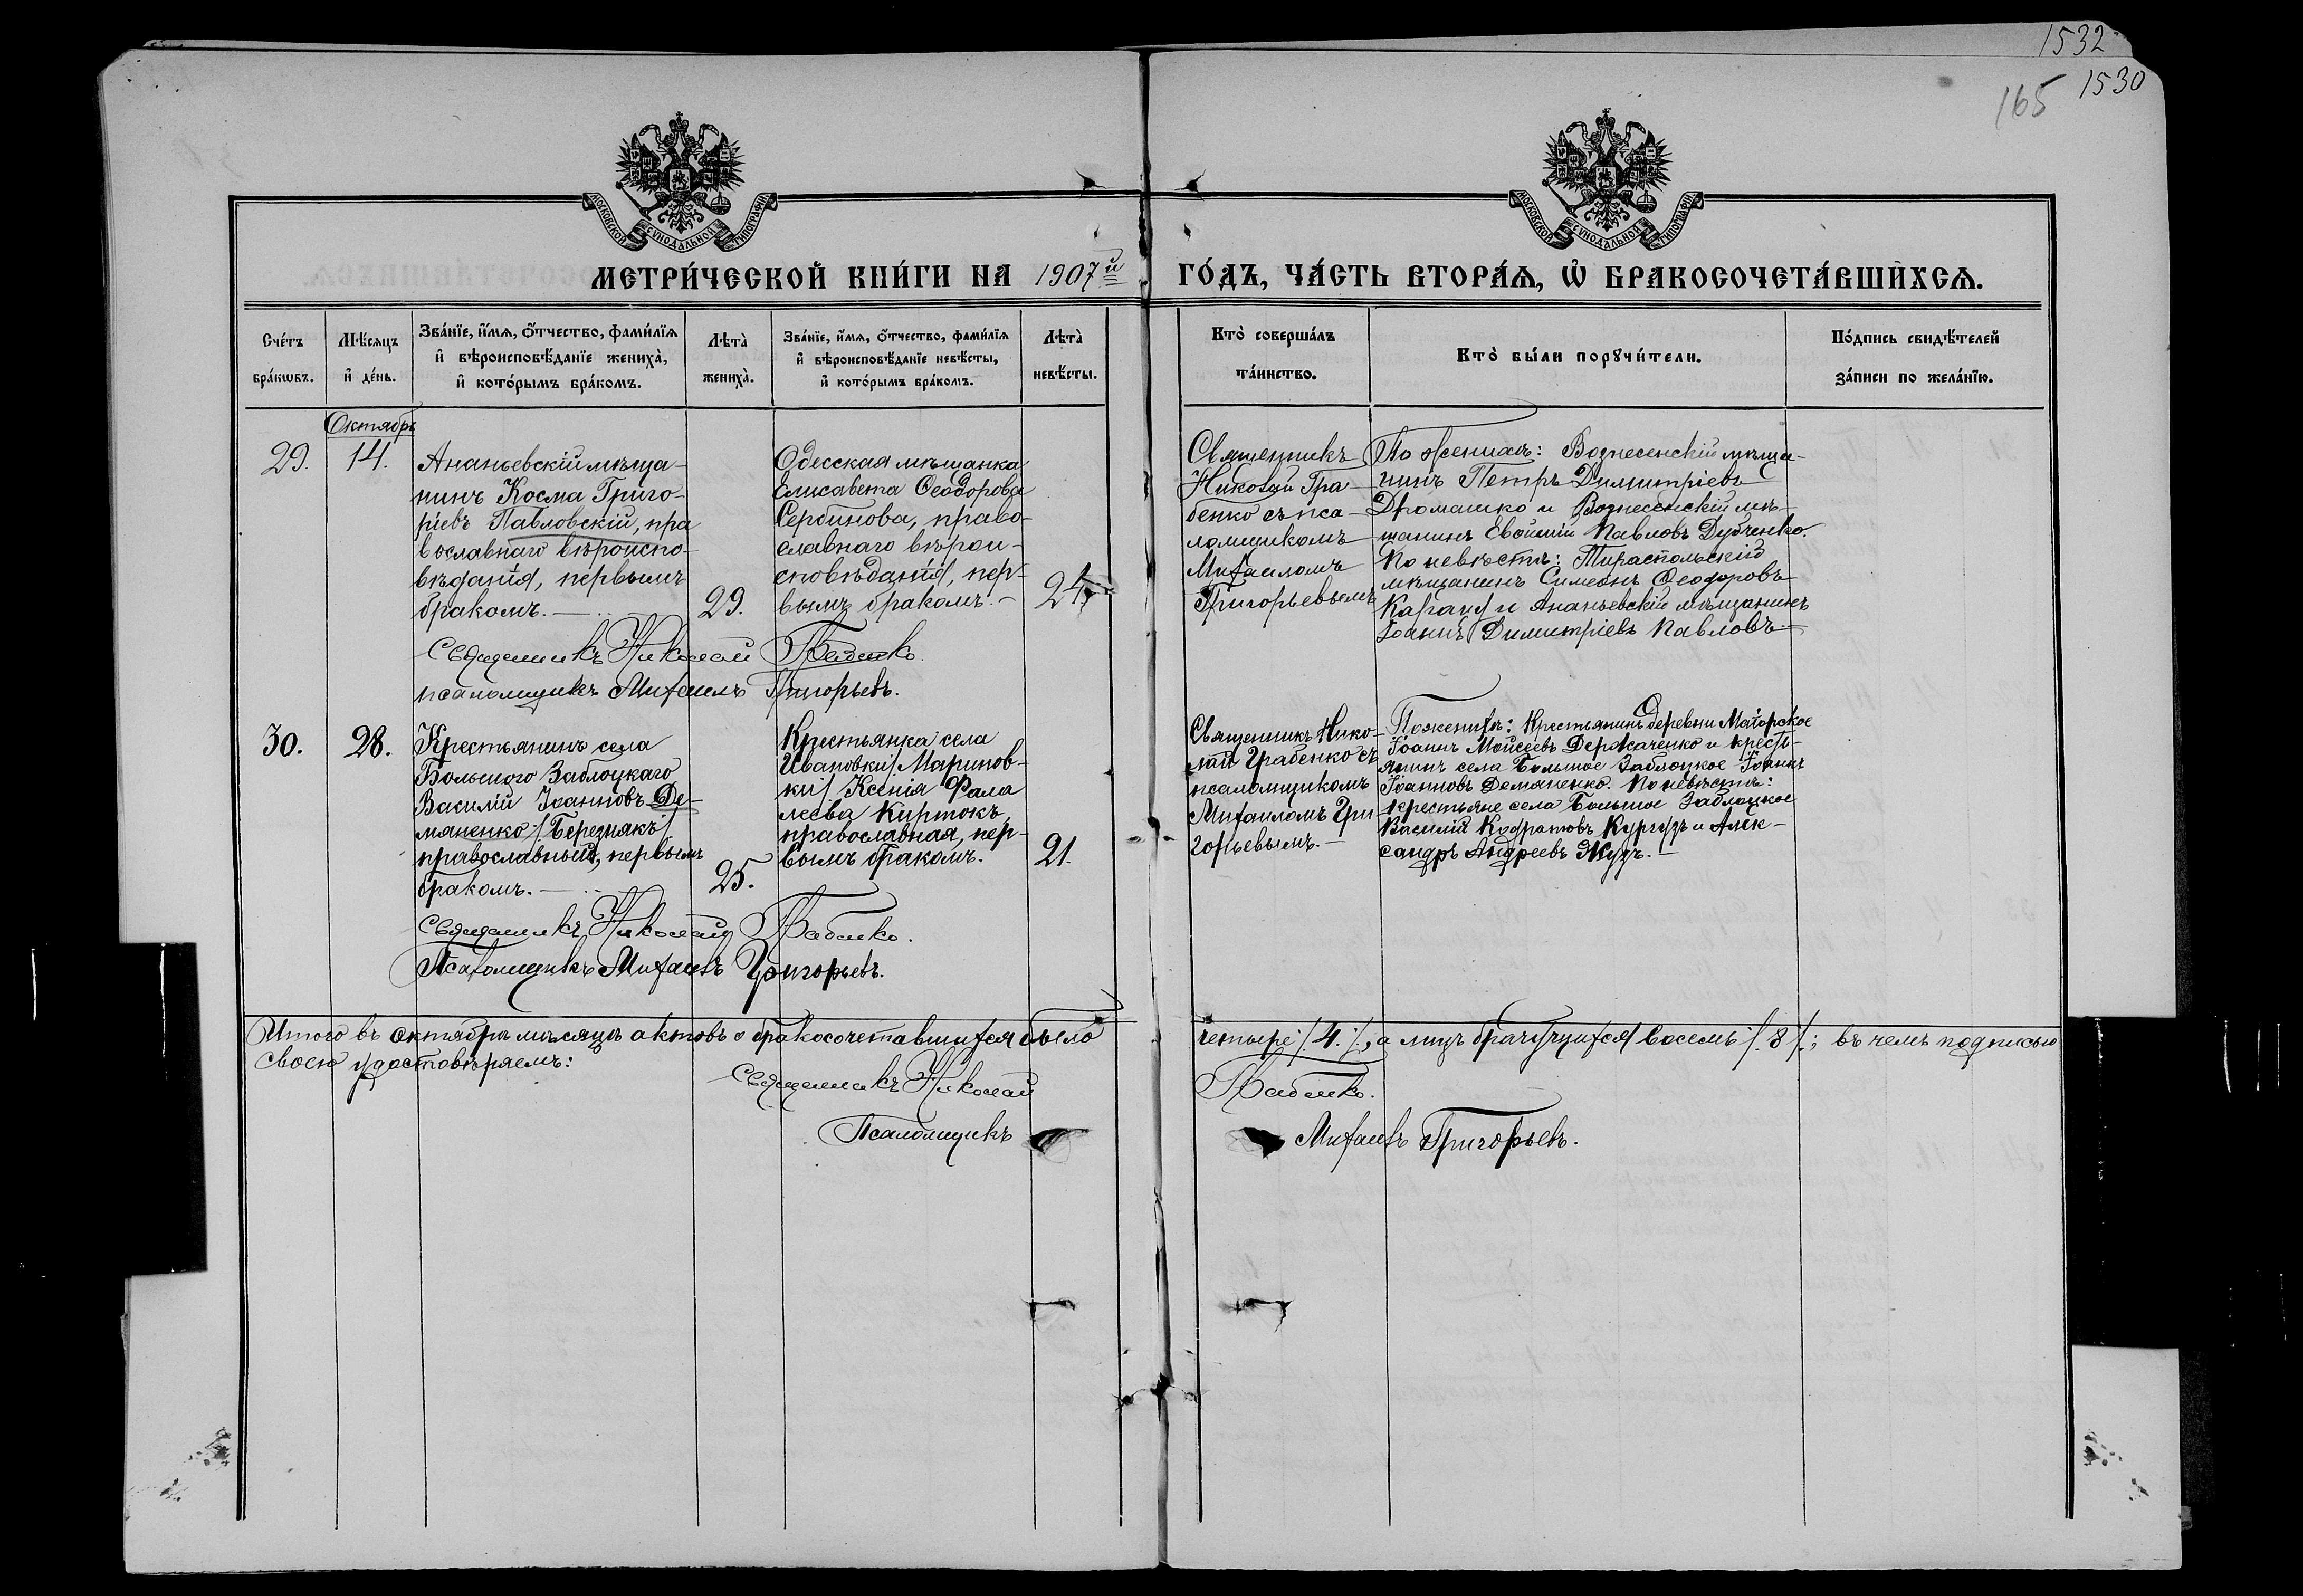 1532
165 1530
МОСКОВСКОЙ СѴНОДАЛЬНОЙ ТИПОГРАФІИ
МОСКОВСКОЙ СѴНОДАЛЬНОЙ ТИПОГРАФІИ
МЕТРИ́ЧЕСКОЙ КНИ́ГИ НА 1907й ГО́ДЪ, ЧА́СТЬ ВТОРА́Ѧ, Ѽ БРАКОСОЧЕТА́ВШИХСѦ.
Сче́тъ
бра́кѡвъ.
Мѣ́сѧцъ
и҆ де́нь.
Зва́нїе, и҆́мѧ, ѻ҆́тчество, фами́лїѧ
и҆ вѣроисповѣ́данїе жениха̀,
и҆ кото́рымъ бра́комъ.
Лѣта̀
жениха̀.
Зва́нїе, и҆́мѧ, ѻ҆́тчество, фами́лїѧ
и҆ вѣроисповѣ́данїе невѣ́сты,
и҆ кото́рымъ бра́комъ.
Лѣта̀
невѣ́сты.
Кто̀ соверша́лъ
та́инство.
Кто̀ бы́ли порꙋчи́тели.
По́дпись свидѣ́телей
за́писи по жела́нїю.
Октябрь
29.
14.
Ананьевскій мѣща-
нинъ Косма Григо-
ріевъ Павловскій, пра
вославнаго вѣроиспо-
вѣданія, первымъ
бракомъ.
29.
Одесская мѣщанка
Елисавета Ѳеодорова
Сербинова, право-
славнаго вѣрои-
сповѣданія, пер-
вымъ бракомъ.
24.
Священникъ
Николай Гра-
бенко съ пса-
ломщикомъ
Михаиломъ
Григорьевымъ
По женихѣ: Вознесенскій мѣща-
нинъ Петръ Димитріевъ
Дромашко и Вознесенскій мѣ-
щанинъ Евѳимій Павловъ Дубченко.
По невѣстѣ: Тираспольскій
мѣщанинъ Симеонъ Ѳеодоровъ
и Ананьевскій мѣщанинъ
Іоаннъ Димитріевъ Павловъ
Священникъ Николай Грабенко.
псаломщикъ Михаилъ Григорьевъ.
30.
28.
Крестьянинъ села
Большого Заблоцкаго
Василій Іоанновъ Де-
мяненко /Березнякъ/
православный, первымъ
бракомъ.
25.
Крестьянка села
Ивановки /Маринов-
ки/ Ксенія Фала
леева Куртокъ,
православная, пер-
вымъ бракомъ.
21.
Священникъ Нико-
лай Грабенко съ
псаломщикомъ
Михаиломъ Гри-
горьевымъ.
По женихѣ: Крестьянинъ деревни Маiорское
Іоаннъ Моисеевъ Держаченко и крестъ-
янинъ села Большое Заблоцкое Іоаннъ
Іоанновъ Демяненко. По невѣстѣ:
крестьяне села Большое Заблоцкое
Василій Кодратовъ Кургузъ и Алек-
сандръ Андреевъ Жудъ.
Священникъ Николай Грабенко.
Псаломщикъ Михаилъ Григорьевъ.
Итого въ октябрѣ мѣсяцѣ актовъ о бракосочетавшихся было четыре /.4./, а лицъ брачущихся восемь /.8/.; въ чемъ подписью
своею удостовѣряемъ:
Священникъ Николай Грабенко.
Псаломщикъ Михаилъ Григорьевъ.